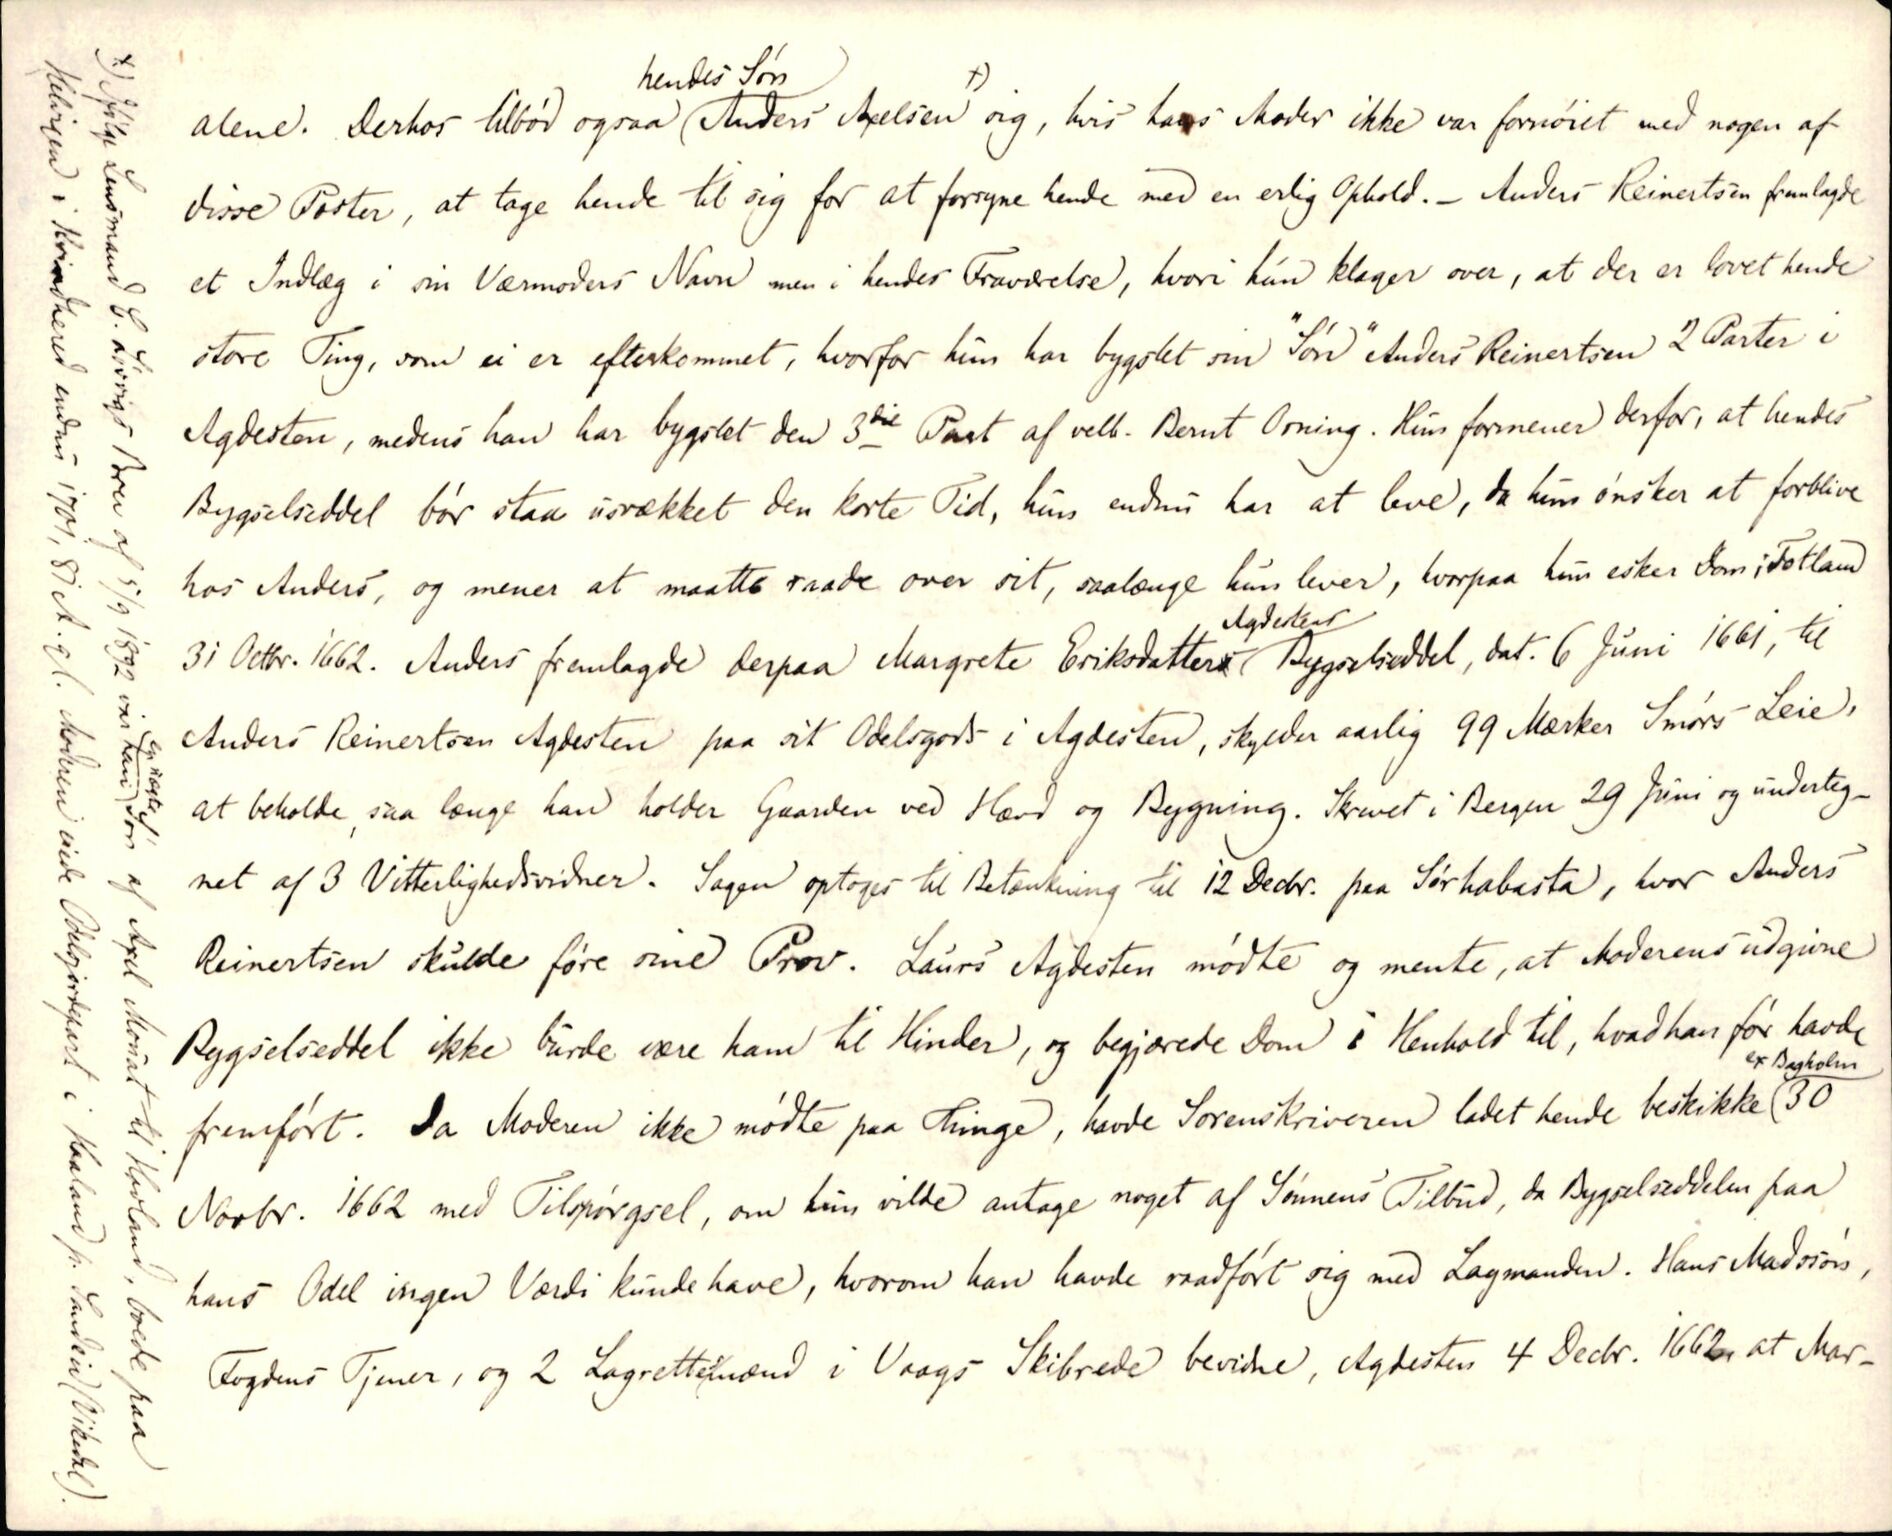 hendes Sön
alene. Derhos tilböd ogsaa Anders Axelsen †) sig, hvis hans Moder ikke var fornöiet med nogen af
disse Poster, at tage hende til sig for at forsyne hende med en erlig Ophold. – Anders Reinertsen fremlagde
et Indlæg i sin Værmoders Navn men i hendes Fraværelse, hvori hun klager over, at der er lovet hende
store Ting, som ei er efterkommet, hvorfor hun har bygslet sin "Sön" Anders Reinertsen 2 Parter i
Agdesten, medens han har bygslet den 3die Part af velb. Bernt Orning. Hun formener derfor, at hendes
Bygselseddel bör staa usvækket den korte Tid, hun endnu har at leve, da hun önsker at forblive
hos Anders, og mener at maatte raade over sit, saalænge hun lever, hvorpaa hun esker Dom; Totland
Agdestens
31 Octbr. 1662. Anders fremlagde derpaa Margrete Eriksdatters Bygselseddel, dat. 6 Juni 1661, til
Anders Reinertsen Agdesten paa sit Odelsgods i Agdesten, skylder aarlig 99 Mærker Smörs Leie,
at beholde, saa længe han holder Gaarden ved Hævd og Bygning. Skrevet i Bergen 29 Juni og underteg-
net af 3 Vitterlighedsvidner. Sagen optoges til Betænkning til 12 Decbr. paa Sörhabasta, hvor Anders
Reinertsen skulde före sine Prov. Laurs Agdesten mödte og mente, at Moderens udgivne
Bygselseddel ikke burde være ham til Hinder, og begjærede Dom i Henhold til, hvad han för havde
ex Bagholm
fremfört. Da Moderen ikke mödte paa Thinge, havde Sorenskriveren ladet hende beskikke 30
Novbr. 1662 med Tilspörgsel, om hun vilde antage noget af Sönnens Tilbud, da Bygselseddelen paa
hans Odel ingen Værdi kunde have, hvorom han havde raadfört sig med Lagmanden. Hans Madssön,
Fogdens Tjener, og 2 Lagrettemænd i Vaags Skibrede bevidne, Agdesten 4 Decbr. 1662, at Mar-
†) Ifölge Lensmand E. Brev af 5/9 1892 var han Sön af Axel Mouat til Hovland, boede paa
Helvigen i Kvindherred endnu 1701, 81 A. gl. Moderen eiede Odelsjordepart i Haaland p. Sandeid (Vikedal).